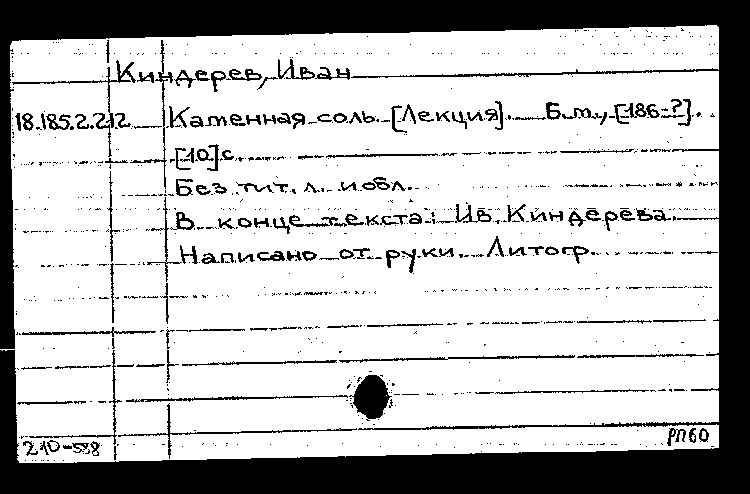 Киндерев, Иван
18.185.2.212 Каменная соль. [Лекция]. Б.м., [186-?].
[10] с.
Без тит. л. и обл.
В конце текста: Ив. Киндерева.
Написано от руки. Литогр.
210-588
РП60